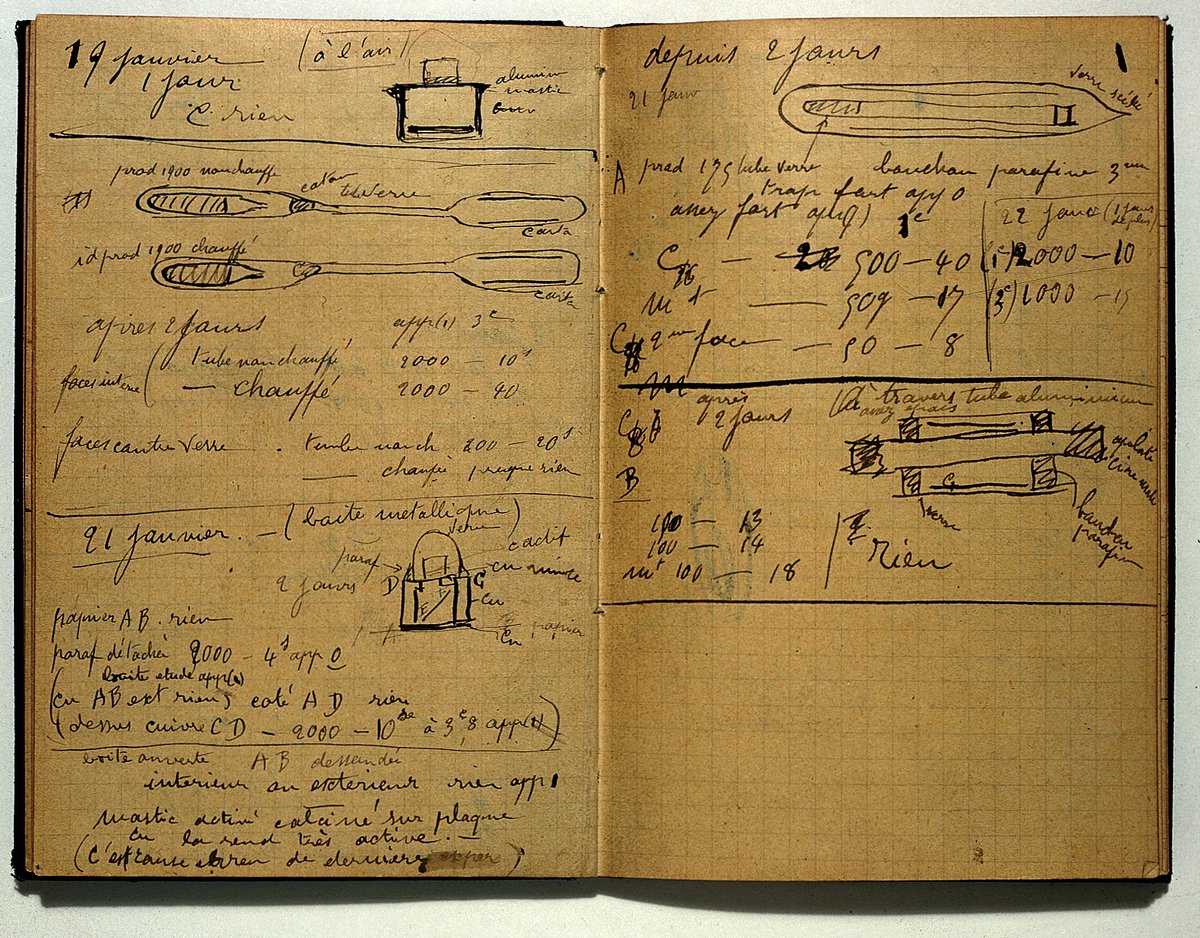 19 janvier
(à l'air)
1 jour
C. rien
alumin
mastic
prod 1900 nonchauffé
coton
tube verre
carta
id prod 1900 chauffé
carta
après 2 jours app(1) 3e
faces interne
tube nonchauffé 2000 — 10s
— chauffé 2000 — 40
faces contre verre . tube nonch 200 — 20s
— chauffé presque rien
21 janvier. — (boîte metallique)
verre
paraf
cactif
cu mince
2 jours
D
C
Cu
A
Cu
papier
papier AB. rien
paraf détaché 2000 — 4s app 0
boîte etude app(1)
(cu AB ext rien, coté AD rien
(dessus cuivre CD — 2000 — 10 de à 3e,8 app(1))
boîte ouverte AB dessoudée
interieur ou exterieur rien app 1
mastic activé calciné sur plaque
cu la rend très active. —
(C'est cause erreur de derniere exper)
depuis 2 jours
1
21 janv
verre scellé
A prod 175 tube verre bouchon parafine 3mm
trop fort app 0
assez fort app(1) 1e
22 janv (1 jours de plus)
C — 500 — 40 (1e) 2000 — 10
mt — 509 — 17 (3e) 1000 — 15
C 2me face — 50 — 8
après
2 jours
(à travers tube aluminium
assez épais
B
C
verre
bouchon
parafin
100 — 13
100 — 14
mt 100 — 18
rien